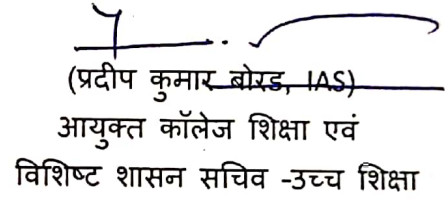 (प्रदीप कुमार बोरड, IAS)
आयुक्त कॉलेज शिक्षा एवं
विशिष्ट शासन सचिव -उच्च शिक्षा